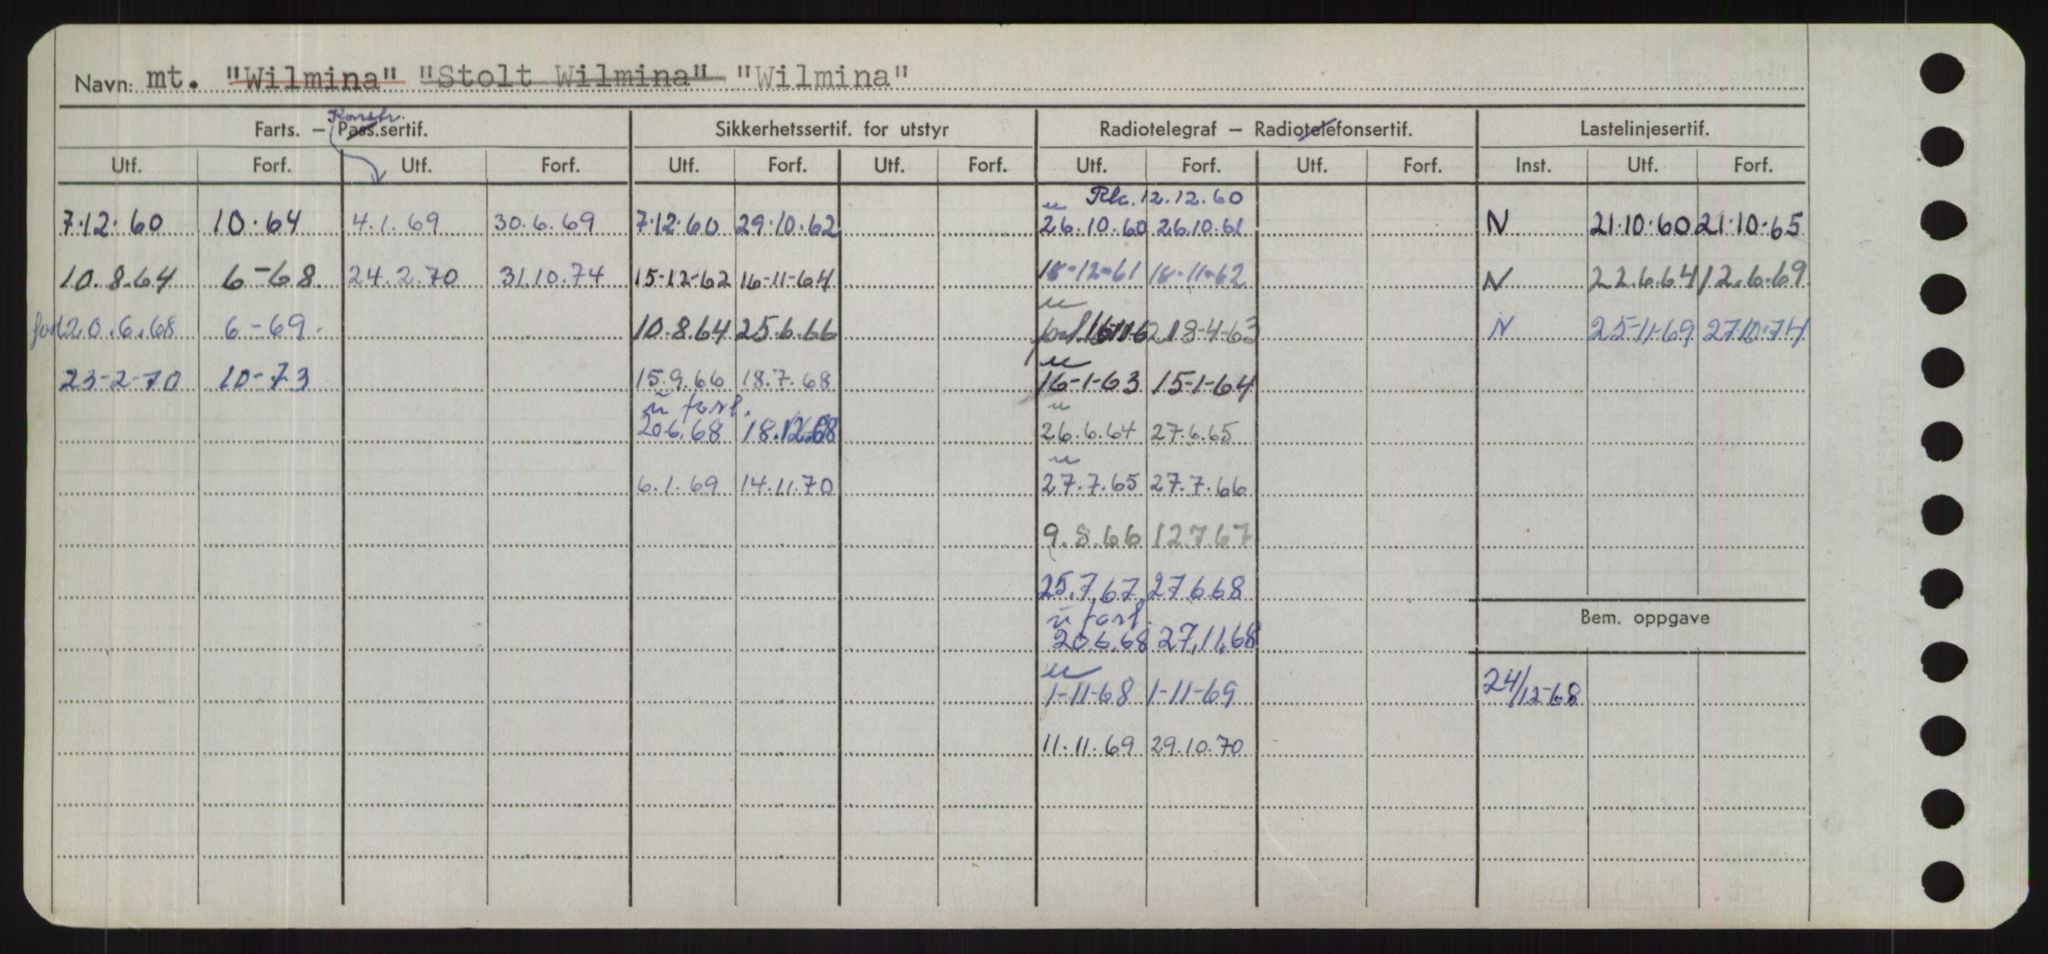 Navn: mt. "Wilmina" "Stolt Wilmina" "Wilmina"
Konstr.
Farts. – Pass.sertif. Sikkerhetssertif. for utstyr Radiotelegraf – Radiotelefonsertif. Lastelinjesertif.
Utf. Forf. Utf. Forf. Utf. Forf. Utf. Forf. Utf. Forf. Utf. Forf. Inst. Utf. Forf.
u Rk. 12.12.60
7.12.60 10.64 4.1.69 30.6.69 7.12.60 29.10.62 26.10.60 26.10.61 N 21.10.60 21.10.65
10.8.64 6-68 24.2.70 31.10.74 15-12-62 16-11-64 18-12-61 18-11-62 N 22.6.64 12.6.69
u
forl 20.6.68 6-69. 10.8.64 25.6.66 18-4-63 N 25-11-69 27.10.74
u
23-2-70 10-73 15.9.66 18.7.68 16-1-63 15-1-64
u forl. u
20.6.68 18.12.68 26.6.64 27.6.65
u
6.1.69 14.11.70 27.7.65 27.7.66
9.8.66 12.7.67
25.7.67 27.6.68
u forl. Bem. oppgave
20.6.68 27.11.68
u
1-11-68 1-11-69 24/12-68
11.11.69 29.10.70